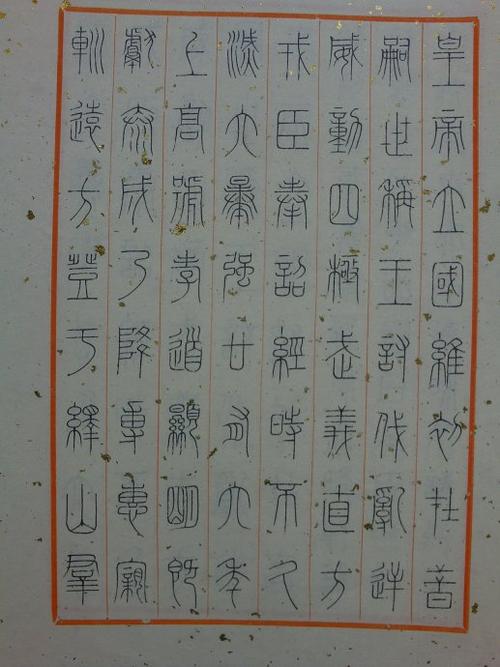 皇帝立國維初在昔
嗣世稱王討伐亂逆
威動四極武義直方
戎臣奉詔經時不久
滅六暴強廿有六年
上薦高號孝道顯明既
獻泰成乃降專惠寴
軔遠方登于繹山羣